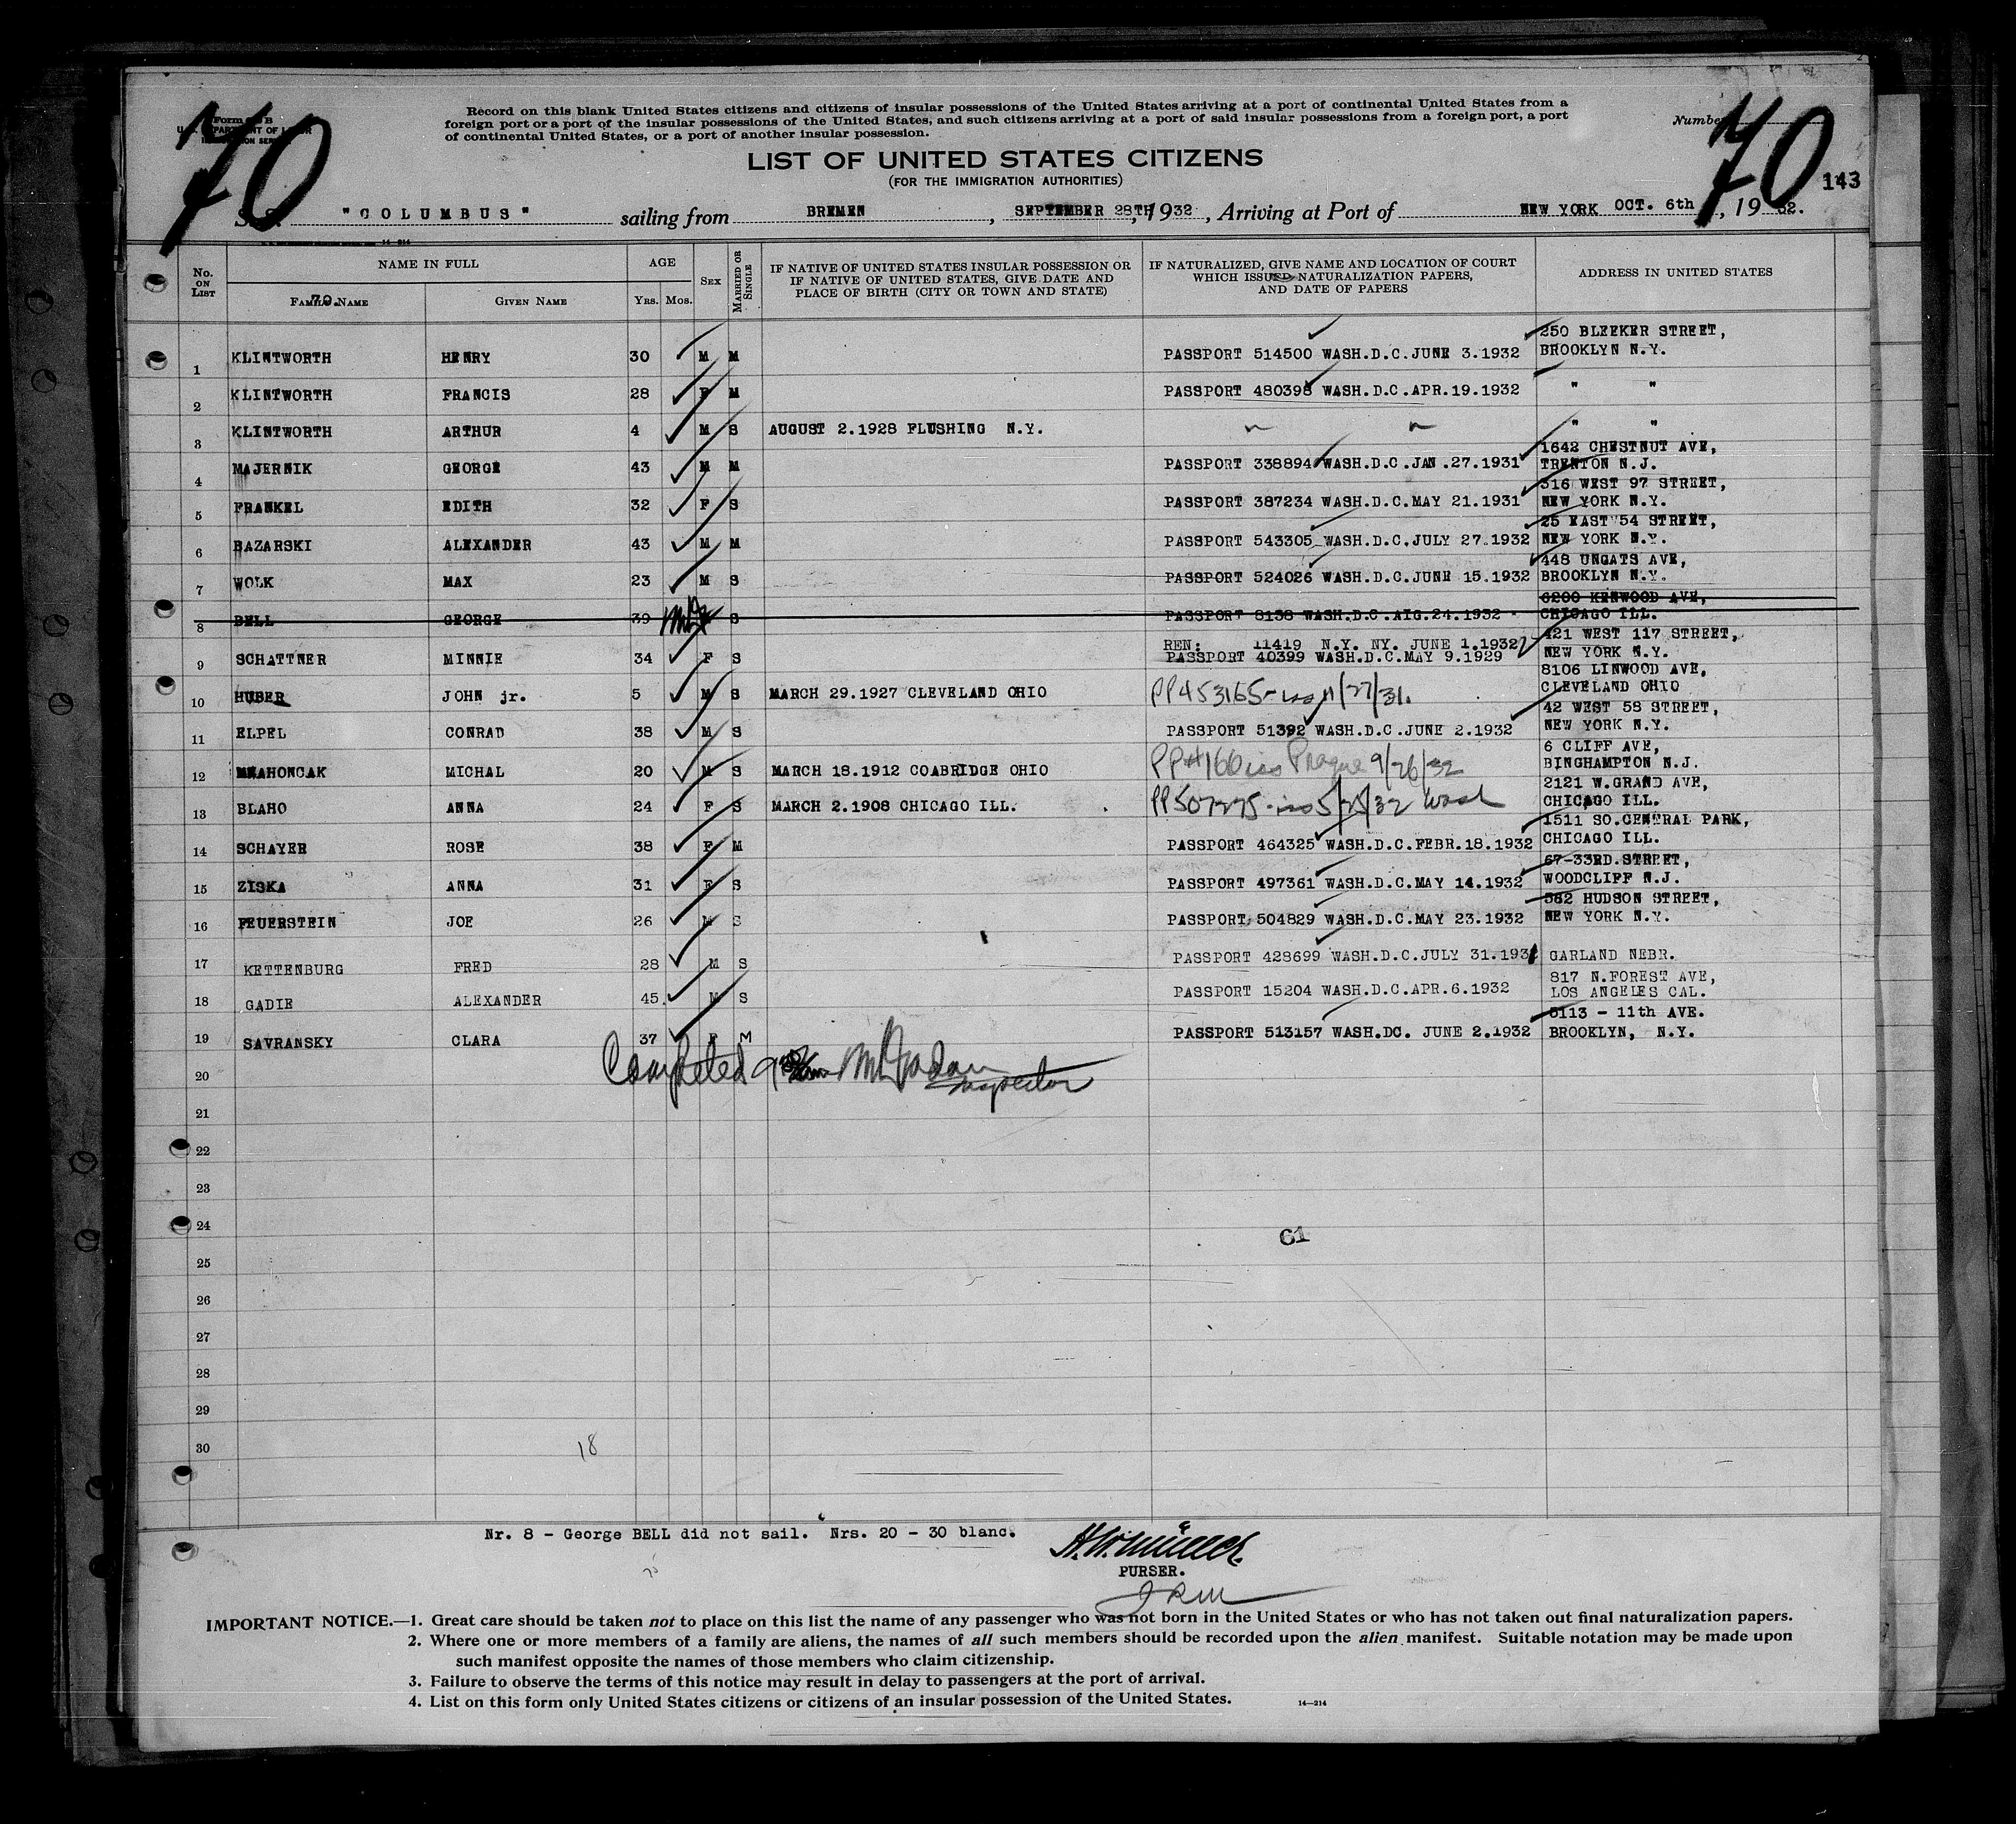 70
Record on this blank United States citizens and citizens of insular possessions of the United States arriving at a port of continental United States from a
foreign port or a port of the insular possessions of the United States, and such citizens arriving at a port of said insular possessions from a foreign port, a port
of continental United States, or a port of another insular possession.
Number 70
143
LIST OF UNITED STATES CITIZENS
(FOR THE IMMIGRATION AUTHORITIES)
S.S. "COLUMBUS" sailing from BREMEN, SEPTEMBER 28TH, 1932, Arriving at Port of NEW YORK OCT. 6th, 1932.
14-214
No. ON LIST NAME IN FULL AGE SEX MARRIED OR SINGLE IF NATIVE OF UNITED STATES INSULAR POSSESSION OR IF NATIVE OF UNITED STATES, GIVE DATE AND PLACE OF BIRTH (CITY OR TOWN AND STATE) IF NATURALIZED, GIVE NAME AND LOCATION OF COURT WHICH ISSUED NATURALIZATION PAPERS, AND DATE OF PAPERS ADDRESS IN UNITED STATES
FAMILY NAME GIVEN NAME YRS. MOS.
70.
250 BLEEKER STREET,
1 KLINTWORTH HENRY 30 M M PASSPORT 514500 WASH.D.C.JUNE 3.1932 BROOKLYN N.Y.
2 KLINTWORTH FRANCIS 28 F M PASSPORT 480398 WASH.D.C.APR.19.1932 " "
3 KLINTWORTH ARTHUR 4 M S AUGUST 2.1928 FLUSHING N.Y. " "
1642 CHESTNUT AVE,
4 MAJERNIK GEORGE 43 M M PASSPORT 338894 WASH.D.C.JAN.27.1931 TRENTON N.J.
316 WEST 97 STREET,
5 FRANKEL EDITH 32 F S PASSPORT 387234 WASH.D.C.MAY 21.1931 NEW YORK N.Y.
25 EAST 54 STREET,
6 BAZARSKI ALEXANDER 43 M M PASSPORT 543305 WASH.D.C.JULY 27.1932 NEW YORK N.Y.
448 UNGATS AVE,
7 WOLK MAX 23 M S PASSPORT 524026 WASH.D.C.JUNE 15.1932 BROOKLYN N.Y.
6200 KENWOOD AVE,
8 BELL GEORGE 39 S PASSPORT 8138 WASH.D.C.AIG.24.1932 CHICAGO ILL.
REN: 11419 N.Y. NY. JUNE 1.1932 421 WEST 117 STREET,
9 SCHATTNER MINNIE 34 F S PASSPORT 40399 WASH.D.C.MAY 9.1929 NEW YORK N.Y.
8106 LINWOOD AVE,
10 HUBER JOHN jr. 5 M S MARCH 29.1927 CLEVELAND OHIO PP453165-iss 11/27/31. CLEVELAND OHIO
42 WEST 58 STREET,
11 ELPEL CONRAD 38 M S PASSPORT 51392 WASH.D.C.JUNE 2.1932 NEW YORK N.Y.
6 CLIFF AVE,
12 MRAHONCAK MICHAL 20 M S MARCH 18.1912 COABRIDGE OHIO PP#166 iss Prague 9/26/32 BINGHAMPTON N.J.
2121 W.GRAND AVE,
13 BLAHO ANNA 24 F S MARCH 2.1908 CHICAGO ILL. PP507275-iss 5/25/32 Wash CHICAGO ILL.
1511 SO.CENTRAL PARK,
14 SCHAYER ROSE 38 F M PASSPORT 464325 WASH.D.C.FEBR.18.1932 CHICAGO ILL.
67-33RD.STREET,
15 ZISKA ANNA 31 F S PASSPORT 497361 WASH.D.C.MAY 14.1932 WOODCLIFF N.J.
582 HUDSON STREET,
16 FEUERSTEIN JOE 26 M S PASSPORT 504829 WASH.D.C.MAY 23.1932 NEW YORK N.Y.
17 KETTENBURG FRED 28 M S PASSPORT 428699 WASH.D.C.JULY 31.1931 GARLAND NEBR.
817 N.FOREST AVE,
18 GADIE ALEXANDER 45. M S PASSPORT 15204 WASH.D.C.APR.6.1932 LOS ANGELES CAL.
5113 - 11th AVE.
19 SAVRANSKY CLARA 37 F M PASSPORT 513157 WASH.DC. JUNE 2.1932 BROOKLYN, N.Y.
Completed Inspector
20
21
22
23
24
61
25
26
27
28
29
30
18
Nr. 8 - George BELL did not sail. Nrs. 20 - 30 blanc.
PURSER.
JRM
IMPORTANT NOTICE.—1. Great care should be taken not to place on this list the name of any passenger who was not born in the United States or who has not taken out final naturalization papers.
2. Where one or more members of a family are aliens, the names of all such members should be recorded upon the alien manifest. Suitable notation may be made upon
such manifest opposite the names of those members who claim citizenship.
3. Failure to observe the terms of this notice may result in delay to passengers at the port of arrival.
4. List on this form only United States citizens or citizens of an insular possession of the United States. 14—214